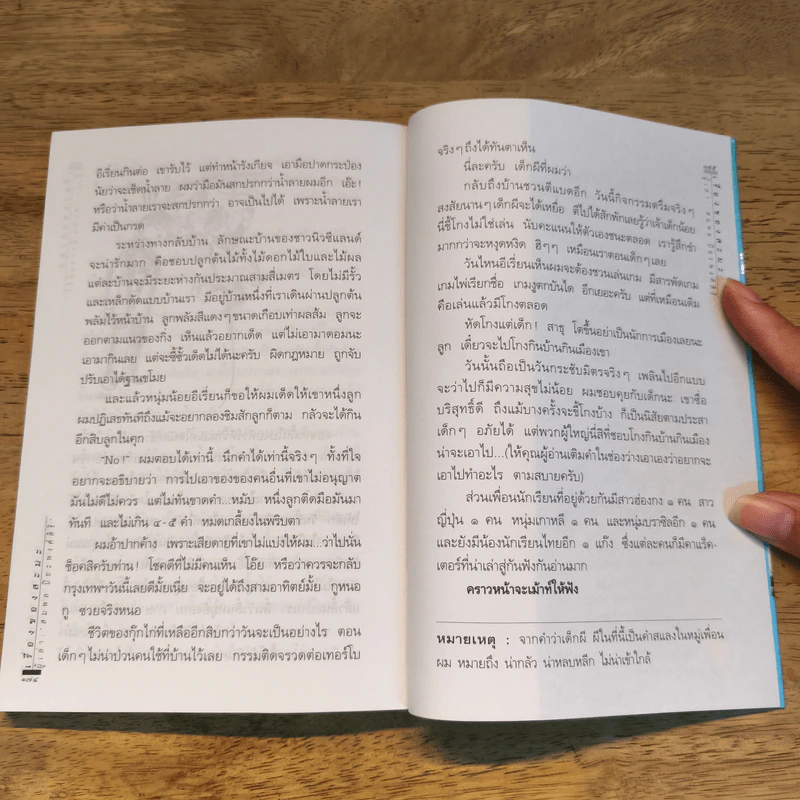 อีเรียนกินต่อ เขารับไว้ แต่ทำหน้ารังเกียจ เอามือปาดกระป๋อง
นัยว่าจะเช็ดน้ำลาย ผมว่ามือมันสกปรกกว่าน้ำลายผมอีก เอ๊ะ!
หรือว่าน้ำลายเราจะสกปรกกว่า อาจเป็นไปได้ เพราะน้ำลายเรา
มีค่าเป็นกรด
ระหว่างทางกลับบ้าน ลักษณะบ้านของชาวนิวซีแลนด์
จะน่ารักมาก คือชอบปลูกต้นไม้ทั้งไม้ดอกไม้ใบและไม้ผล
แต่ละบ้านจะมีระยะห่างกันประมาณสามสี่เมตร โดยไม่มีรั้ว
และเหล็กดัดแบบบ้านเรา มีอยู่บ้านหนึ่งที่เราเดินผ่านปลูกต้น
พลัมไว้หน้าบ้าน ลูกพลัมสีแดงๆ ขนาดเกือบเท่าผลส้ม ลูกจะ
ออกตามแนวของกิ่ง เห็นแล้วอยากเด็ด แต่ไม่เอามาดอมนะ
เอามากินเลย แต่จะซี้ซั้วเด็ดไม่ได้นะครับ ผิดกฎหมาย ถูกจับ
ปรับเอาได้ฐานขโมย
และแล้วหนุ่มน้อยอีเรียนก็ขอให้ผมเด็ดให้เขาหนึ่งลูก
ผมปฏิเสธทันทีถึงแม้จะอยากลองชิมสักลูกก็ตาม กลัวจะได้กิน
อีกสิบลูกในคุก
"No!" ผมตอบได้เท่านี้ นึกคำได้เท่านี้จริงๆ ทั้งที่ใจ
อยากจะอธิบายว่า การไปเอาของของคนอื่นที่เขาไม่อนุญาต
มันไม่ดีไม่ควร แต่ไม่ทันขาดคำ...หมับ หนึ่งลูกติดมือมันมา
ทันที และไม่เกิน ๔-๕ คำ หมดเกลี้ยงในพริบตา
ผมอ้าปากค้าง เพราะเสียดายที่เขาไม่แบ่งให้ผม...ว่าไปนั่น
ช็อคสิครับท่าน! โชคดีที่ไม่มีคนเห็น โอ๊ย หรือว่าควรจะกลับ
กรุงเทพฯ วันนี้เลยดีมั้ยเนี่ย จะอยู่ได้ถึงสามอาทิตย์มั้ย กูหนอ
กู ซวยจริงหนอ
ชีวิตของกุ๊กไก่ที่เหลืออีกสิบกว่าวันจะเป็นอย่างไร ตอน
เด็กๆ ไม่น่าป่วนคนใช้ที่บ้านไว้เลย กรรมติดจรวดต่อเทอร์โบ
เรื่องของสะมะ
๑๗๔
จริงๆ ถึงได้ทันตาเห็น
นี่ละครับ เด็กผีที่ผมว่า
กลับถึงบ้านชวนตีแบดอีก วันนี้กิจกรรมดรีมจริงๆ
สงสัยนานๆ เด็กผีจะได้เหยื่อ ตีไปได้สักพักเลยรู้ว่าเจ้าเด็กน้อย
นี่ขี้โกงไม่ใช่เล่น นับคะแนนให้ตัวเองชนะตลอด เรารู้สึกขำ
มากกว่าจะหงุดหงิด ฮิๆๆ เหมือนเราตอนเด็กๆ เลย
วันไหนอีเรียนเห็นผมจะต้องชวนเล่นเกม มีสารพัดเกม
เกมไพ่เรียกชื่อ เกมงูตกบันได อีกเยอะครับ แต่ที่เหมือนเดิม
คือเล่นแล้วมีโกงตลอด
หัดโกงแต่เด็ก! สาธุ โตขึ้นอย่าเป็นนักการเมืองเลยนะ
ลูก เดี๋ยวจะไปโกงกินบ้านกินเมืองเขา
วันนั้นถือเป็นวันกระชับมิตรจริงๆ เพลินไปอีกแบบ
จะว่าไปก็มีความสุขไม่น้อย ผมชอบคุยกับเด็กนะ เขาซื่อ
บริสุทธิ์ดี ถึงแม้บางครั้งจะขี้โกงบ้าง ก็เป็นนิสัยตามประสา
เด็กๆ อภัยได้ แต่พวกผู้ใหญ่นี่สิที่ชอบโกงกินบ้านกินเมือง
น่าจะเอาไป...(ให้คุณผู้อ่านเติมคำในช่องว่างเอาเองว่าอยากจะ
เอาไปทำอะไร ตามสบายครับ)
ส่วนเพื่อนนักเรียนที่อยู่ด้วยกันมีสาวฮ่องกง ๑ คน สาว
ญี่ปุ่น ๑ คน หนุ่มเกาหลี ๑ คน และหนุ่มบราซิลอีก ๑ คน
และยังมีน้องนักเรียนไทยอีก ๑ แก๊ง ซึ่งแต่ละคนก็มีคาแร็ค-
เตอร์ที่น่าเล่าสู่กันฟังกันอ่านมาก
คราวหน้าจะเม้าท์ให้ฟัง
หมายเหตุ : จากคำว่าเด็กผี ผีในที่นี้เป็นคำสแลงในหมู่เพื่อน
ผม หมายถึง น่ากลัว น่าหลบหลีก ไม่น่าเข้าใกล้